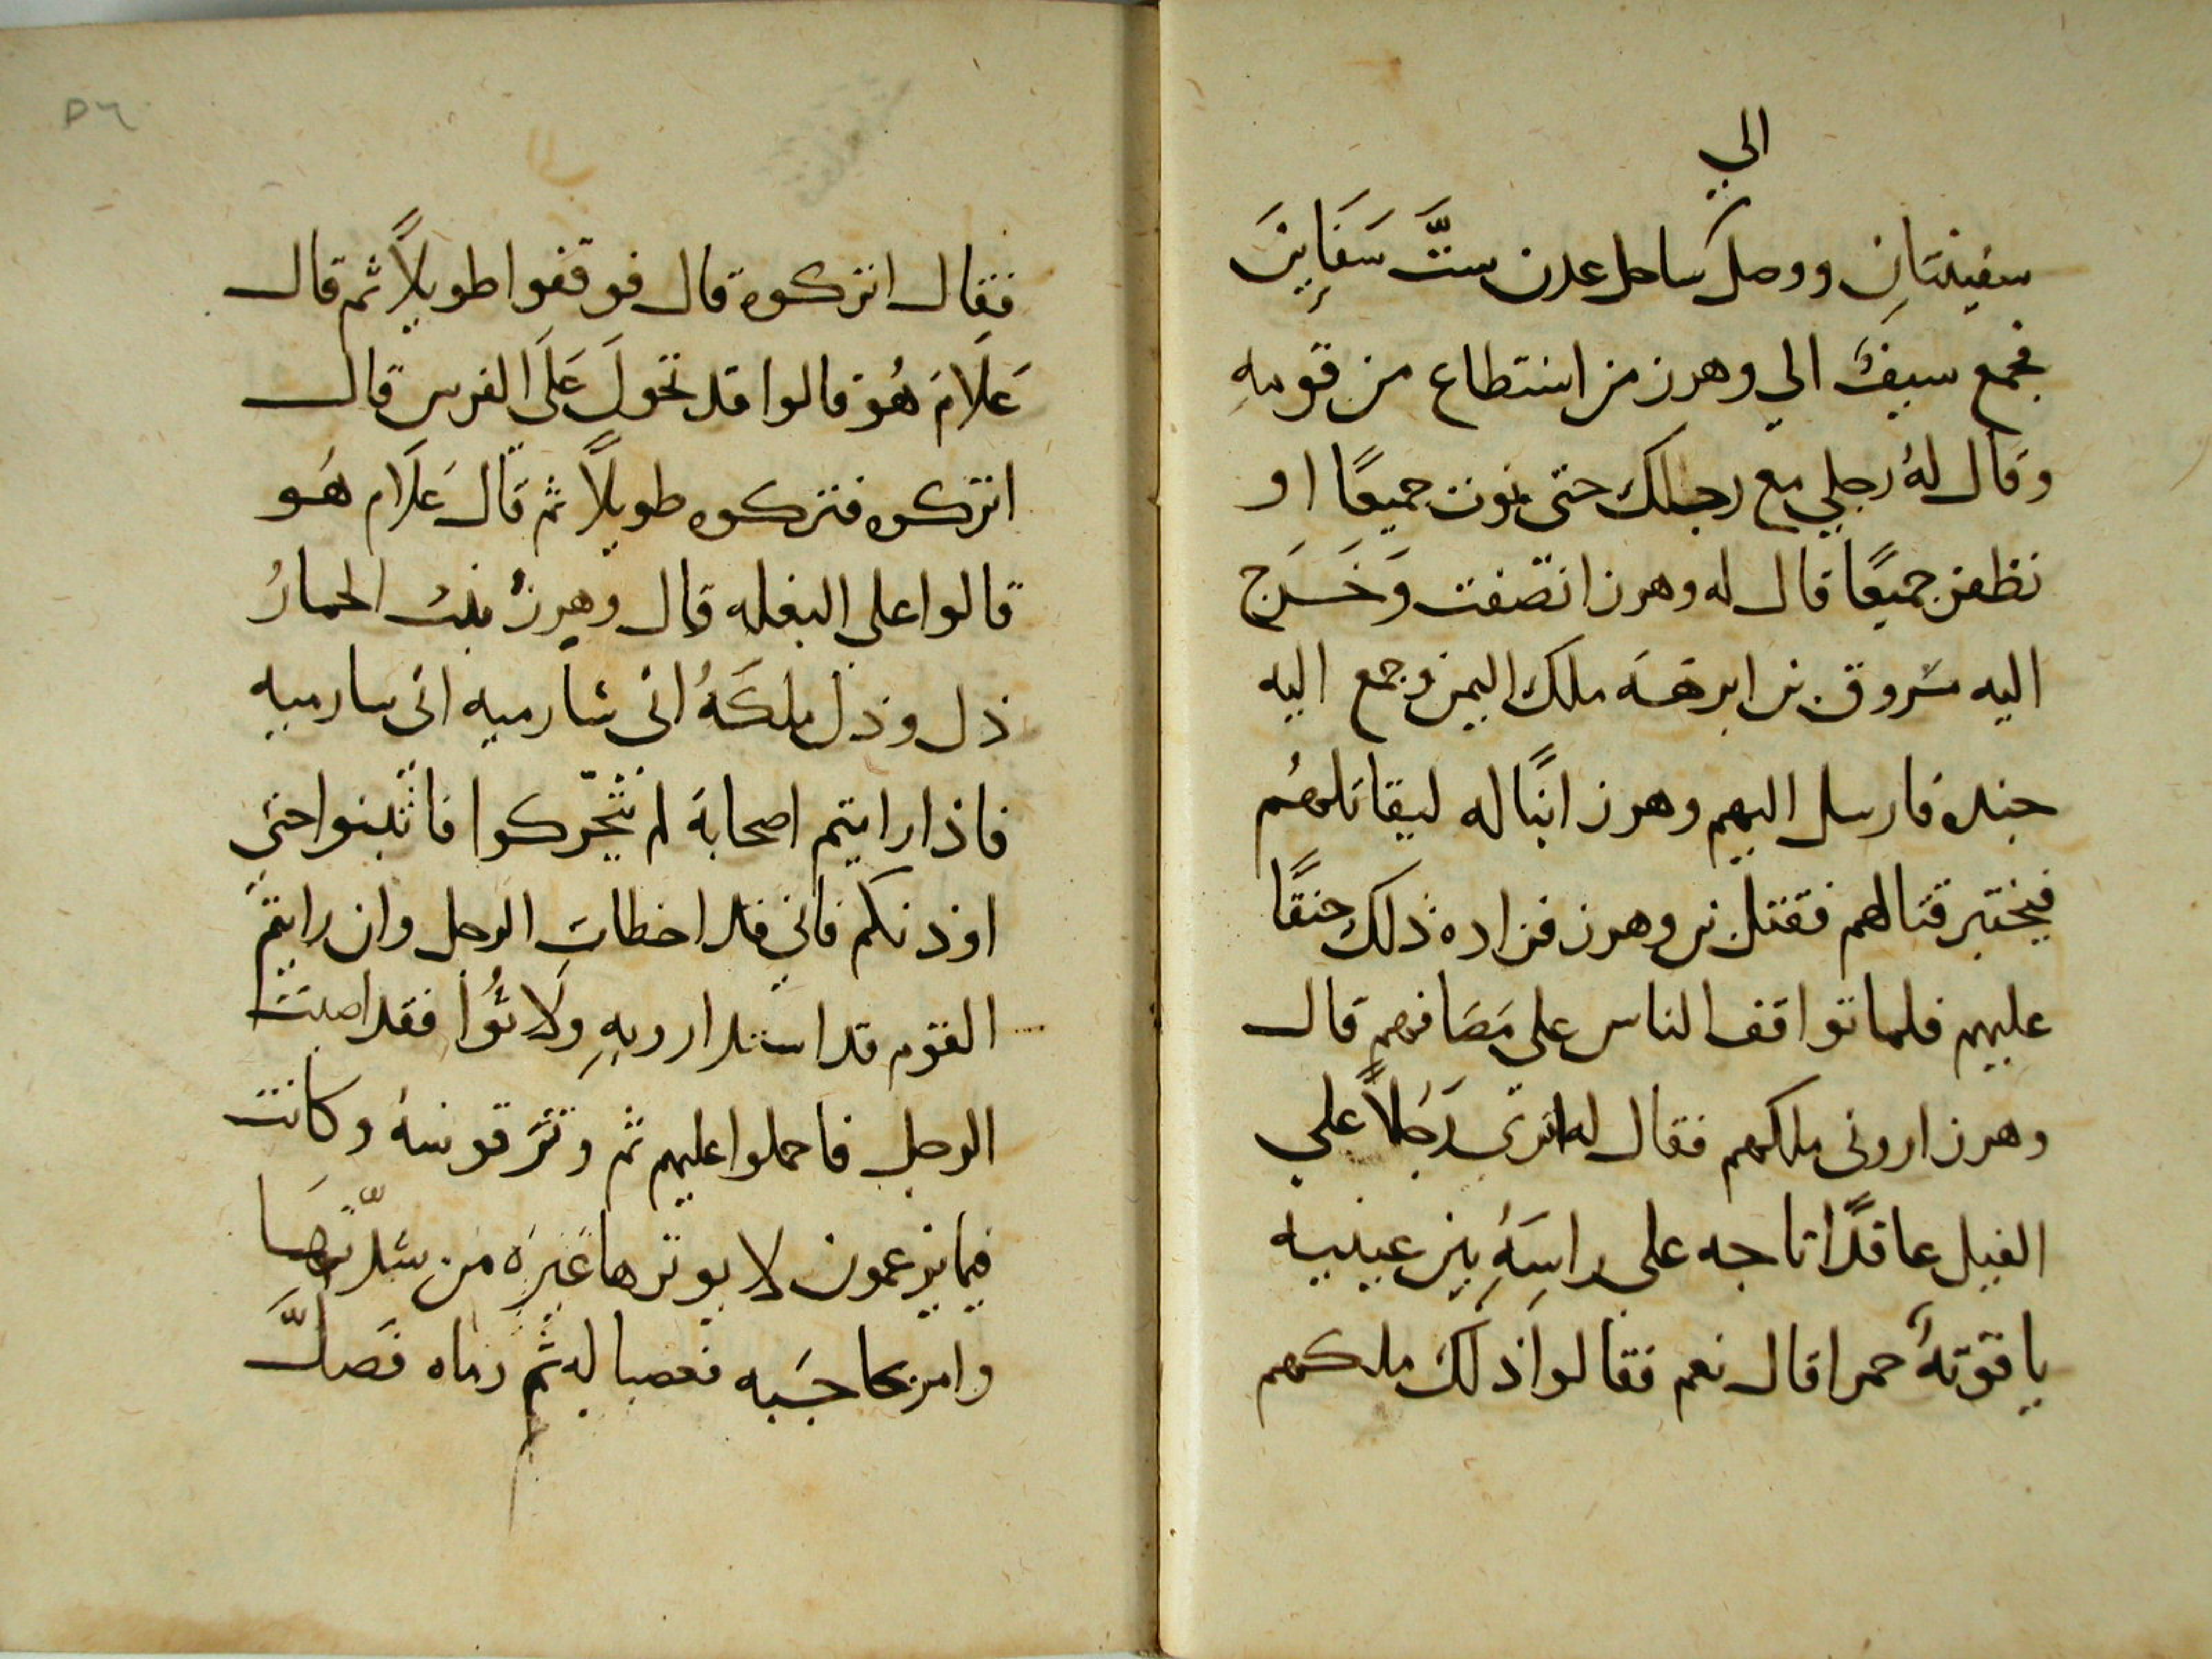 الي
سفينتان ووصل ساحل عدن ستَّ سَفَاينَ
فجمع سيفُ الي وهرز من استطاع من قومهِ
وقال لهُ رجلي مع رجلك حتى نموت جميعًا او
نظفر جميعًا قال له وهرز انصفت وَخَرَج
اليه مسروق بن ابرهَه ملك اليمن وجمع اليه
جنده فارسل اليهم وهرز ابنًا له ليقاتلهُم
فيختبر قتالهم فقتل بن وهرز فزاده ذلك حنقًا
عليهم فلما تواقف الناس علي مَصَافهم قال
وهرز اروني ملكهم فقال له اترى رَجُلاً علي
الفيل عاقدًا تاجه علي راسَهِ بين عينيه
ياقوتهٌ حمرا قال نعم فقالوا ذلك ملكهم
٥٦
فقال اتركوه قال فوقفوا طويلاً ثم قال
عَلَامَ هُو قالوا قد تحولَ عَلَى الفرس قال
اتركوه فتركوه طويلاً ثم قال عَلَام هَو
قالوا على البغله قال وهرزُ بنت الحمارُ
ذل وذل ملكهُ اني سارميه اني سارميه
فاذا رايتم اصحابهَ لم يتحّركوا فاثبتوا حتي
اوذنكم فاني قد اخطات الرجل وان رايتم
القوم قد استداروا بهِ ولاثُوا فقد اصبت
الرجل فاحملوا عليهم ثم وتر قوسهُ وكانت
فيما يزعمون لا يوترها غيره من شدّتهَا
وامر بحاجبَيه فعصبا له ثم رماه فَصَكَّ